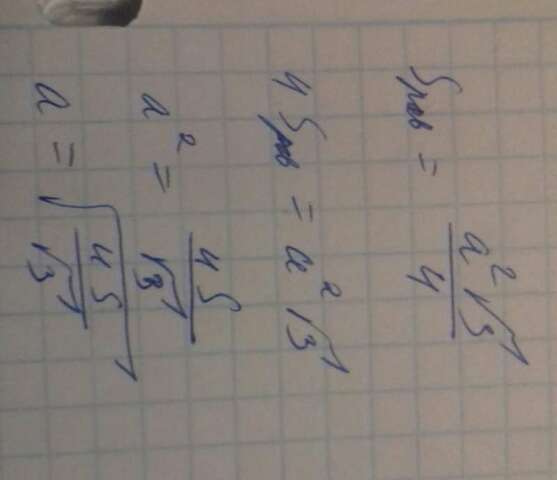 Sрав = a²√3 / 4
4 Sрав = a²√3
a² = 4S / √3
a = √(4S / √3)